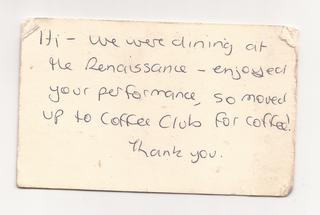 Hi - we were dining at
the Renaissance - enjoyed
your performance, so moved
up to Coffee Club for coffee!
Thank you.